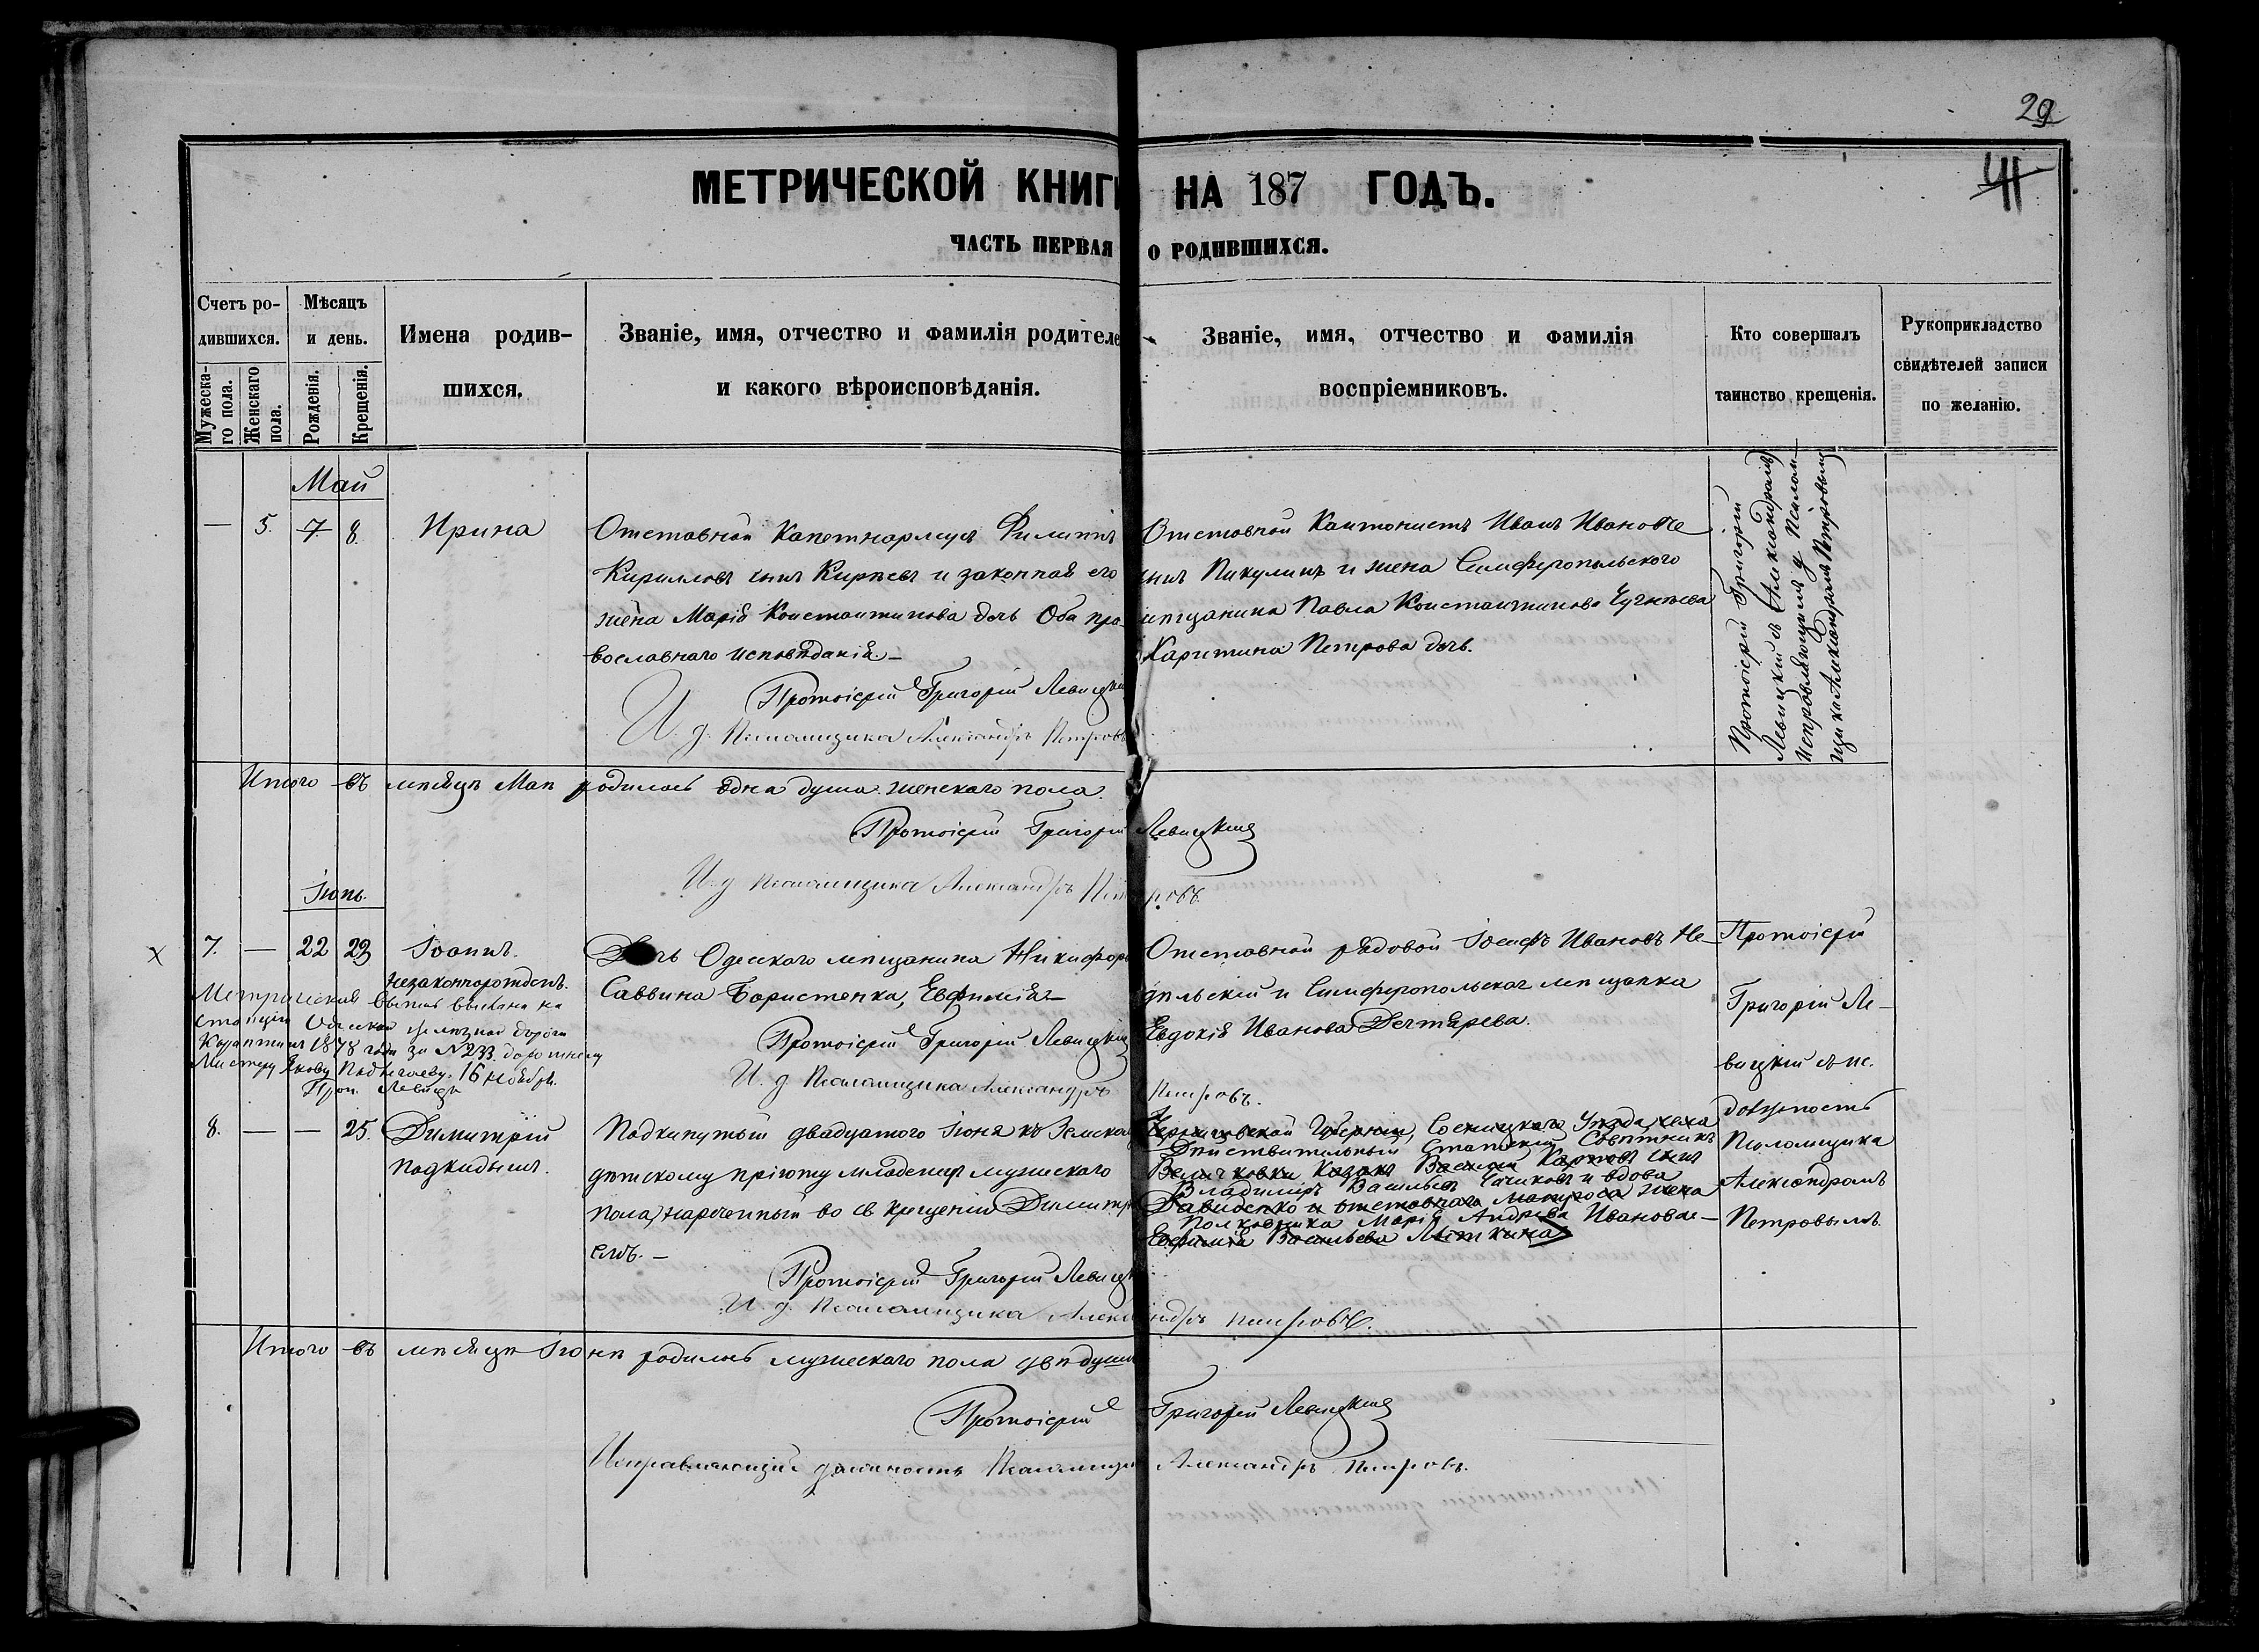 29
41
МЕТРИЧЕСКОЙ КНИГИ НА 187 ГОДЪ.
ЧАСТЬ ПЕРВАЯ О РОДИВШИХСЯ.
Счетъ ро-
дившихся.
Мужеска-
го пола.
Женскаго
пола.
Мѣсяцъ
и день.
Рожденія.
Крещенія.
Имена родив-
шихся.
Званіе, имя, отчество и фамилія родителе
и какого вѣроисповѣданія.
Званіе, имя, отчество и фамилія
воспріемниковъ.
Кто совершалъ
таинство крещенія.
Рукоприкладство
свидѣтелей записи
по желанію.
Май
— 5. 7. 8. Ирина
Отставной Капетнармусъ Филиппъ
Кирилловъ сынъ Кирѣевъ и законная его
жена Марія Константинова дочь Оба пра-
вославнаго исповѣданія.—
Протоіерей Григорій Левицкій
И. д. Псаломщика Александръ Петровъ
Отставной Кантонистъ Иванъ Ивановъ
сынъ Пикулинъ и жена Симферопольскаго
мѣщанина Павла Константинова
Харитина Петрова дочь.
Протоіерей Григорій
Левицкій съ
исправляющимъ д. Псалом-
щика Александромъ Петровымъ
Итого въ мѣсяцѣ Маѣ родилась одна душа женскаго пола.
Протоіерей Григорій Левицкій
И. д. Псаломщика Александръ Петровъ.
Іюнь.
7. — 22 23 Іоаннъ.
незаконнорожден.
Дочь Одесскаго мѣщанина Никифора
Саввина Бористенка, Евфимія—
Протоіерей Григорій Левицкій
И. д. Псаломщика Александръ Петровъ.
Отставной рядовой Іосифъ Ивановъ Не-
дѣльскій и Симферопольская мѣщанка
Евдокія Иванова Дехтярева.
Протоіерей
Григорій Ле-
вицкій съ ис.
должность
Псаломщика
Александромъ
Петровымъ.
Метрическая выпись выслана на
станцію Одесской желѣзной дороги
1878 года за № 233. дорожному
Мастеру Якову 16 Ноября.
Прот. Левицк
8. — — 25. Димитрій
подкидышъ.
Подкинутый двадцатого Іюня къ Земскому
дѣтскому пріюту младенецъ мужескаго
пола, нареченный во св крещеніи Димитрі
емъ.—
Протоіерей Григорій Левицкій
И. д. Псаломщика Александръ Петровъ.
Черниговской Губерніи, Сосницкаго Уѣзда, села
Дѣйствительный Статскій Совѣтникъ
Величковки Козакъ Василій Карповъ сынъ
Владиміръ Васильевъ и вдова
Давиденко и отставнаго Матроса жена
Полковника Марія Андреева Иванова—
Евфимія Васильева
Итого въ мѣсяцѣ Іюнѣ родилось мужескаго пола двѣ души
Протоіерей Григорій Левицкій
Исправляющій должность Псаломщика Александръ Петровъ.